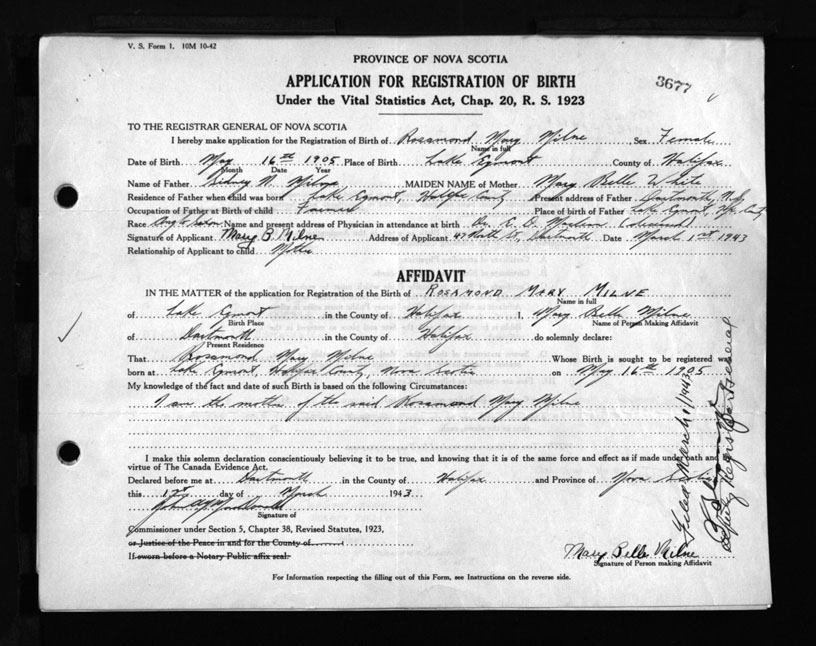 V. S. Form 1. 10M 10-42
PROVINCE OF NOVA SCOTIA
APPLICATION FOR REGISTRATION OF BIRTH
3677
Under the Vital Statistics Act, Chap. 20, R. S. 1923
TO THE REGISTRAR GENERAL OF NOVA SCOTIA
I hereby make application for the Registration of Birth of Rosamond Mary Milne Sex Female
Name in full
Date of Birth May 16th 1905 Place of Birth Lake Egmont County of Halifax
Month Date Year
Name of Father Sidney N. Milne MAIDEN NAME of Mother Mary Belle White
Residence of Father when child was born Lake Egmont, Halifax County Present address of Father Dartmouth, N.S.
Occupation of Father at Birth of child Farmer Place of birth of Father Lake Egmont, Hfx. County
Race Anglo Saxon Name and present address of Physician in attendance at birth Dr. E. D. (deceased)
Signature of Applicant Mary B. Milne Address of Applicant 47 St, Dartmouth Date March 1st 1943
Relationship of Applicant to child Mother
AFFIDAVIT
IN THE MATTER of the application for Registration of the Birth of ROSAMOND MARY MILNE
Name in full
of Lake Egmont in the County of Halifax I, Mary Belle Milne
Birth Place Name of Person Making Affidavit
of Dartmouth in the County of Halifax do solemnly declare:
Present Residence
That Rosamond Mary Milne Whose Birth is sought to be registered was
born at Lake Egmont, Halifax County, Nova Scotia on May 16th 1905
My knowledge of the fact and date of such Birth is based on the following Circumstances:
I am the mother of the said Rosamond Mary Milne
I make this solemn declaration conscientiously believing it to be true, and knowing that it is of the same force and effect as if made under oath and
virtue of The Canada Evidence Act.
Declared before me at Dartmouth in the County of Halifax and Province of Nova Scotia
this 1st day of March 1943
John MacDonald
Signature of
Commissioner under Section 5, Chapter 38, Revised Statutes, 1923,
or Justice of the Peace in and for the County of
If sworn before a Notary Public affix seal.
Mary Belle Milne
Signature of Person making Affidavit
For Information respecting the filling out of this Form, see Instructions on the reverse side.
Filed March 1/1943
Deputy Registrar General